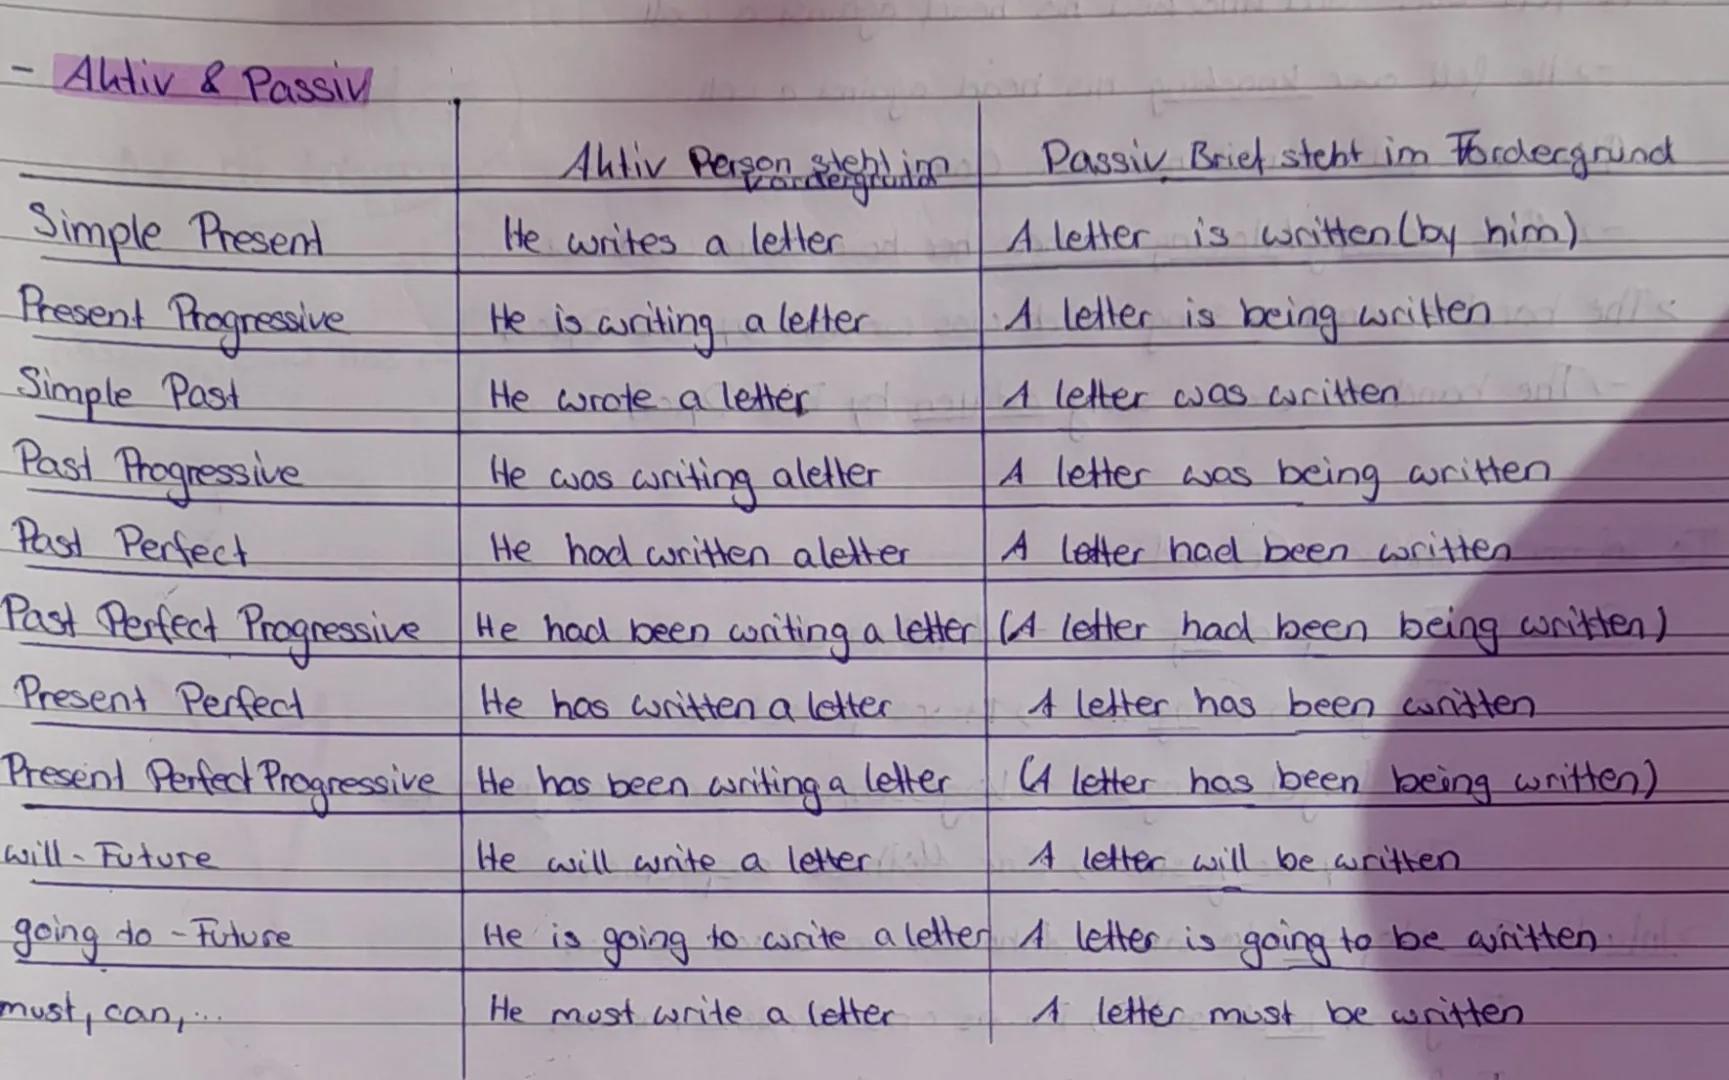 - Aktiv & Passiv
Aktiv Person steht im Vordergrund Passiv Brief steht im Fordergrund
Simple Present He writes a letter A letter is written (by him)
Present Progressive He is writing a letter A letter is being written
Simple Past He wrote a letter A letter was written
Past Progressive He was writing aletter A letter was being written
Past Perfect He had written aletter A letter had been written
Past Perfect Progressive He had been writing a letter (A letter had been being written)
Present Perfect He has written a letter A letter has been written
Present Perfect Progressive He has been writing a letter (A letter has been being written)
will-Future He will write a letter A letter will be written
going to -Future He is going to write a letter A letter is going to be written
must, can, ... He must write a letter A letter must be written